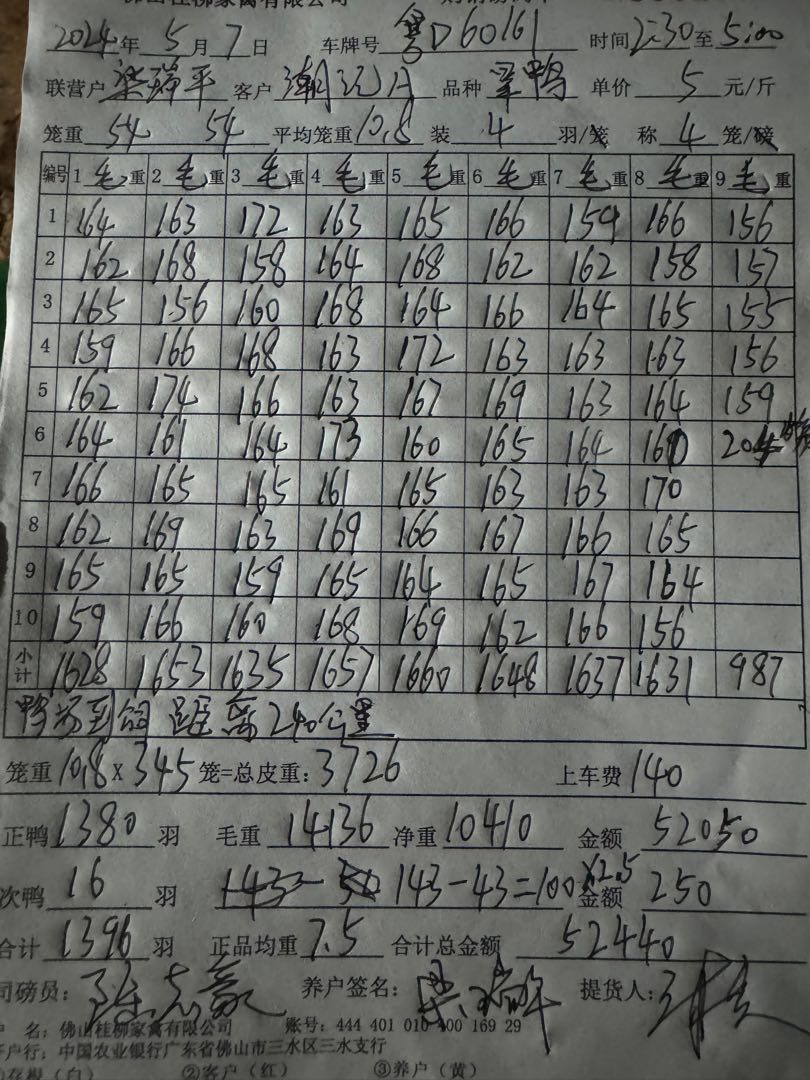 佛山桂柳家禽有限公司
2024年5月7日 车牌号 粤D60161 时间2:30至5:00
联营户 梁瑞平 客户 品种 鸭 单价 5 元/斤
笼重 54 54 平均笼重10.8 装 4 羽/笼 称 4 笼/磅
编号 1毛重 2毛重 3毛重 4毛重 5毛重 6毛重 7毛重 8毛重 9毛重
1 164 163 172 163 165 166 159 166 156
2 162 168 158 164 168 162 162 158 157
3 165 156 160 168 164 166 164 165 155
4 159 166 168 163 172 163 163 163 156
5 162 174 166 163 167 169 163 164 159
6 164 161 164 173 160 165 164 160 204
7 166 165 165 161 165 163 163 170
8 162 169 163 169 166 167 166 165
9 165 165 159 165 164 165 167 164
10 159 166 160 168 169 162 166 156
小计 1628 1653 1635 1657 1660 1648 1637 1631 987
鸭场到 距离240公里
笼重10.8×345笼=总皮重:3726 上车费 140
正鸭1380羽 毛重 14136 净重 10410 金额 52050
次鸭 16 羽 143-43=100×2.5 金额 250
合计 1396 羽 正品均重 7.5 合计总金额 52440
司磅员: 养户签名: 梁瑞平 提货人:
户 名:佛山桂柳家禽有限公司 账号:444 401 010 400 169 29
开户行:中国农业银行广东省佛山市三水区三水支行
①存根(白) ②客户(红) ③养户(黄)